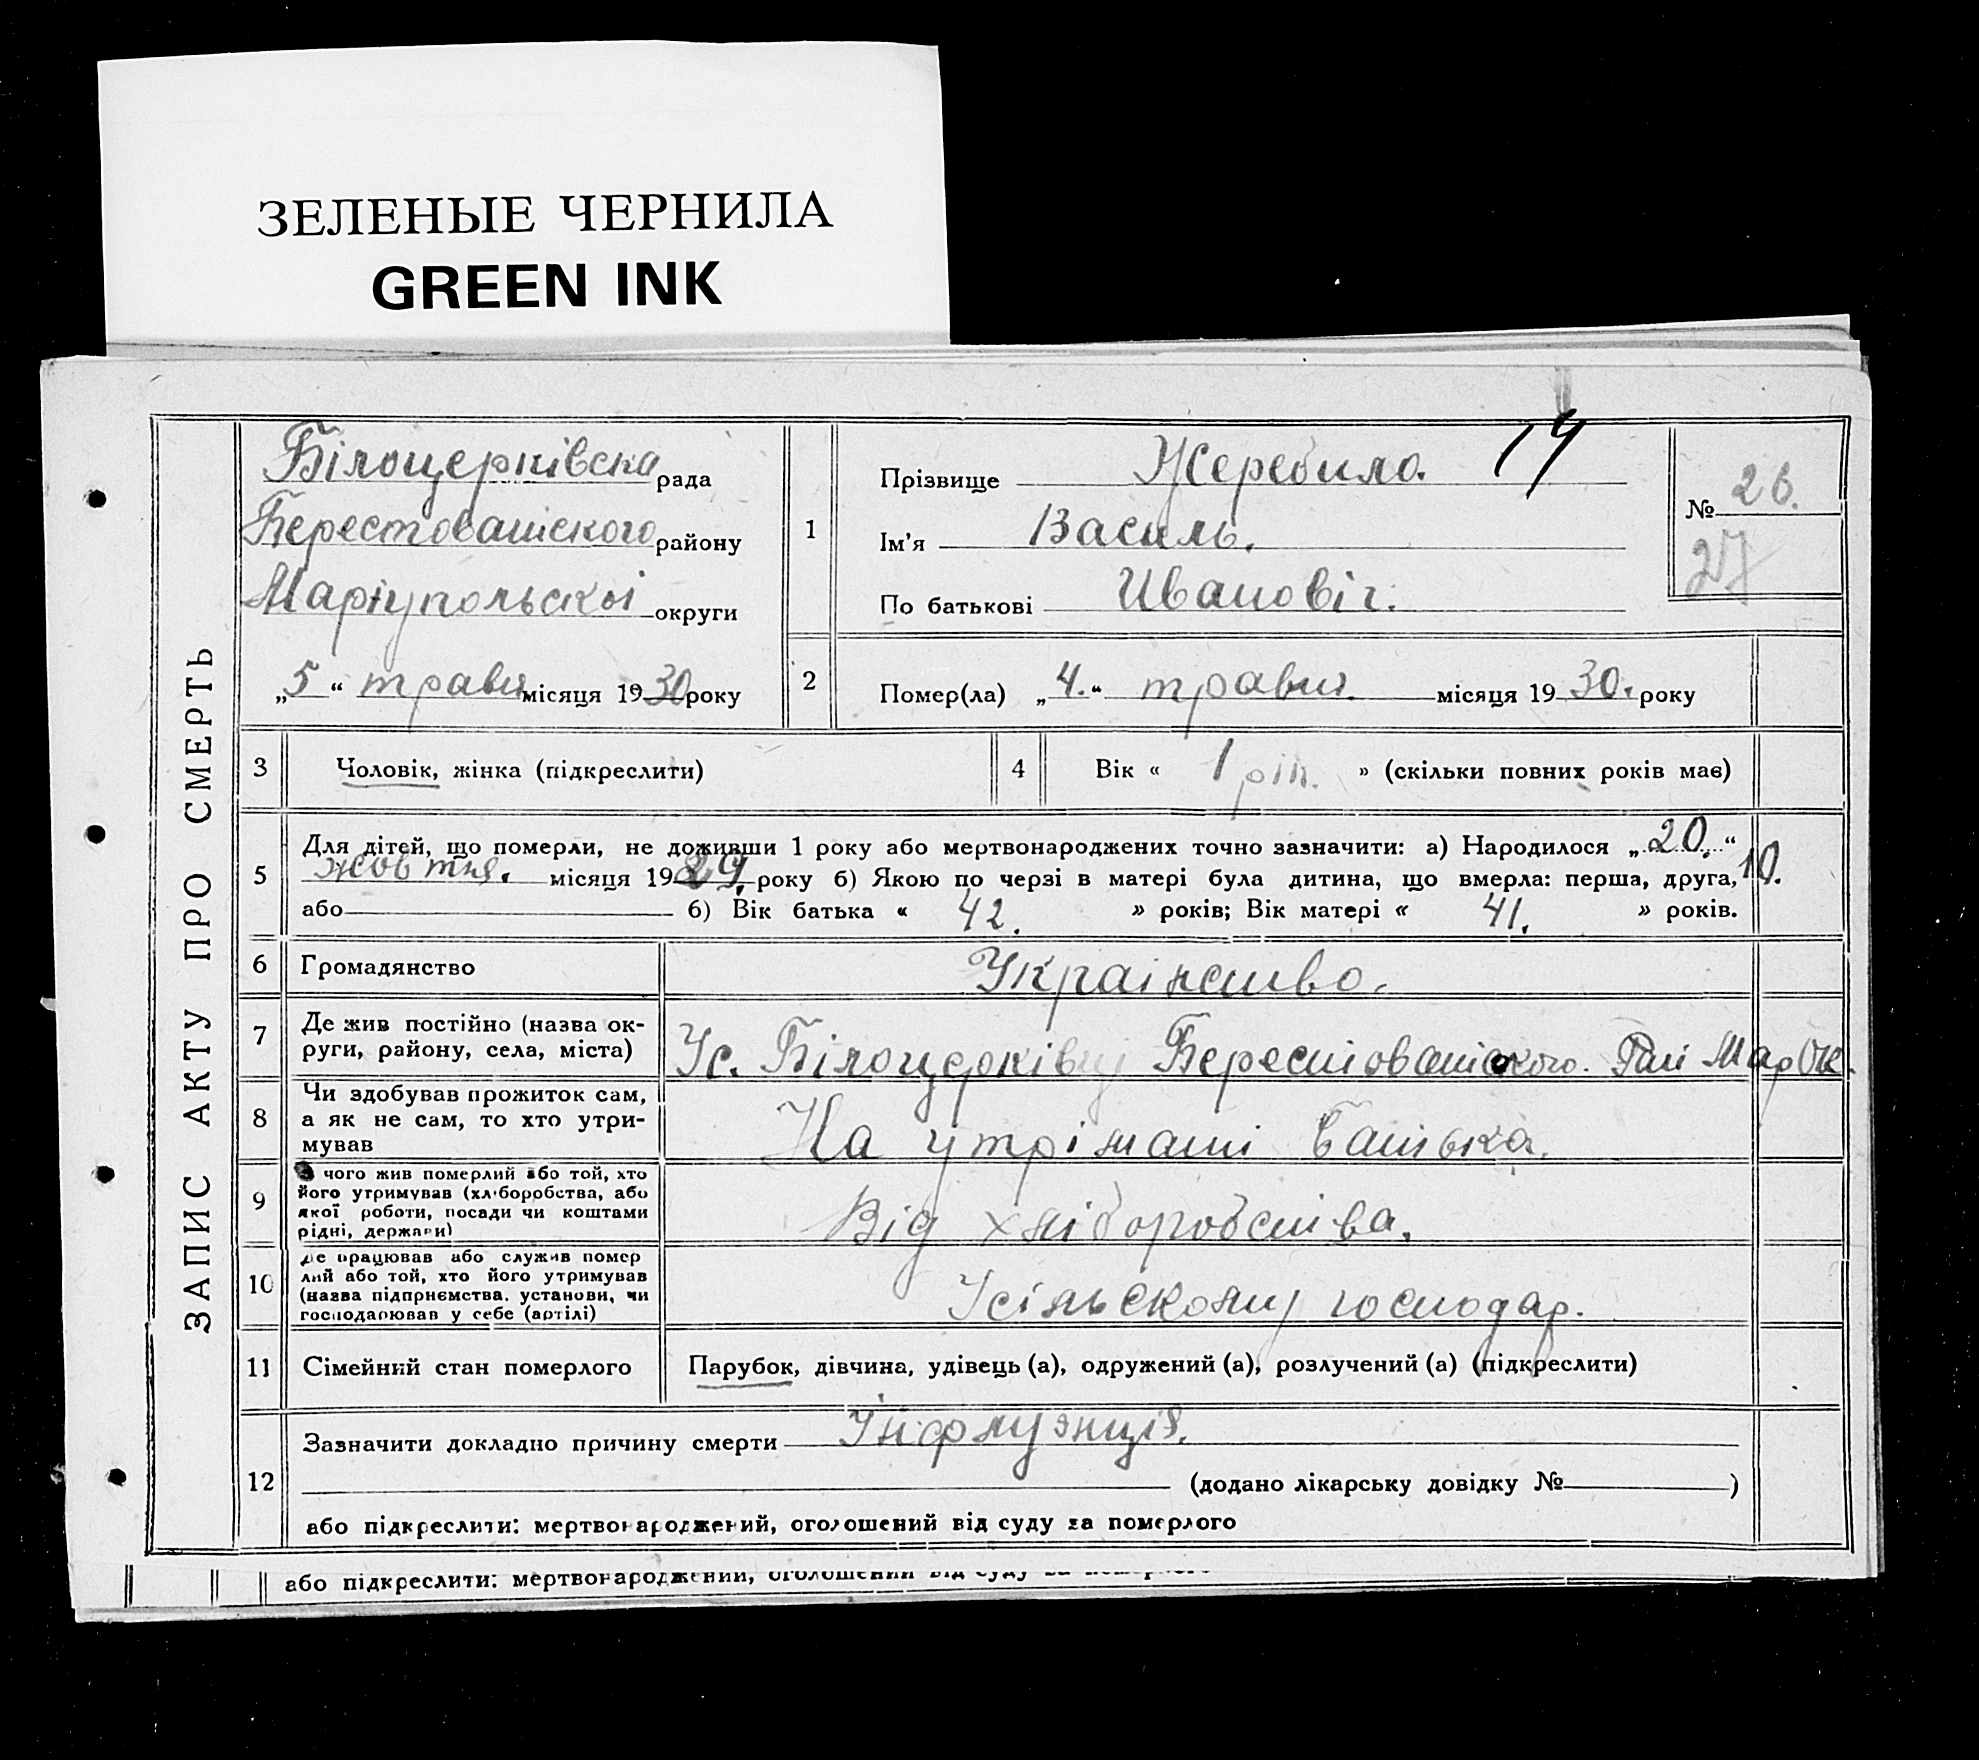 ЗЕЛЕНЫЕ ЧЕРНИЛА
GREEN INK
ЗАПИС АКТУ ПРО СМЕРТЬ
Білоцерківська рада
Берестоватського району
Маріупольскоі округи
„5“ травн місяця 1930 року
1
Прізвище Жеребило. 19
Ім'я Василь.
По батькові Ивановіч.
№ 26.
27
2
Помер(ла) „4.“ травня. місяця 1930. року
3 Чоловік, жінка (підкреслити)
4 Вік « 1 рік. » (скільки повних років має)
5
Для дітей, що померли, не доживши 1 року або мертвонароджених точно зазначити: а) Народилося „20.“
жовтня. місяця 1929. року б) Якою по черзі в матері була дитина, що вмерла: перша, друга, 10.
або б) Вік батька « 42. » років; Вік матері « 41. » років.
6 Громадянство Украінство.
7 Де жив постійно (назва ок-
руги, району, села, міста)
Ус. Білоцерківці Берестоватського.
8 Чи здобував прожиток сам,
а як не сам, то хто утри-
мував
На утрімані батька.
9 чого жив померлий або той, хто
його утримував (хліборобства, або
якої роботи, посади чи коштами
рідні, держави)
Від хліборобства.
10 Де працював або служив помер
лий або той, хто його утримував
(назва підпрнємства, установи, чи
господарював у себе (артілі)
Усільскому господар.
11 Сімейний стан померлого Парубок, дівчина, удівець (а), одружений (а), розлучений (а) (підкреслити)
12
Зазначити докладно причину смерти Інфлуэнція.
(додано лікарську довідку № )
або підкреслити: мертвонароджений, оголошений від суду за померлого
або підкреслити: мертвонароджений, оголошений від суду за померлого